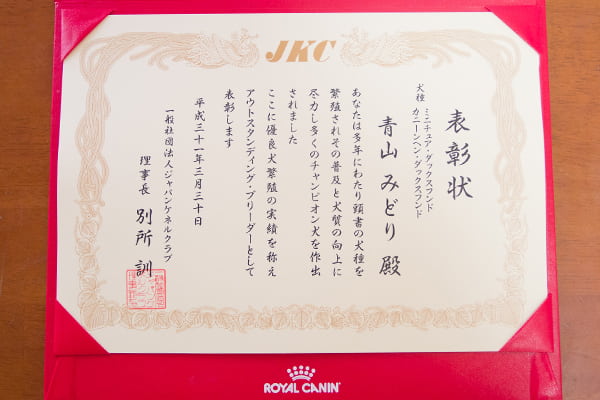 JKC
表彰状
犬種 ミニチュア・ダックスフンド
カニーンヘン・ダックスフンド
青山 みどり 殿
あなたは多年にわたり頭書の犬種を
繁殖されその普及と犬質の向上に
尽力し多くのチャンピオン犬を作出
されました
ここに優良犬繁殖の実績を称え
アウトスタンディング・ブリーダーとして
表彰します
平成三十一年三月三十日
一般社団法人ジャパンケネルクラブ
理事長 別所 訓
ROYAL CANIN